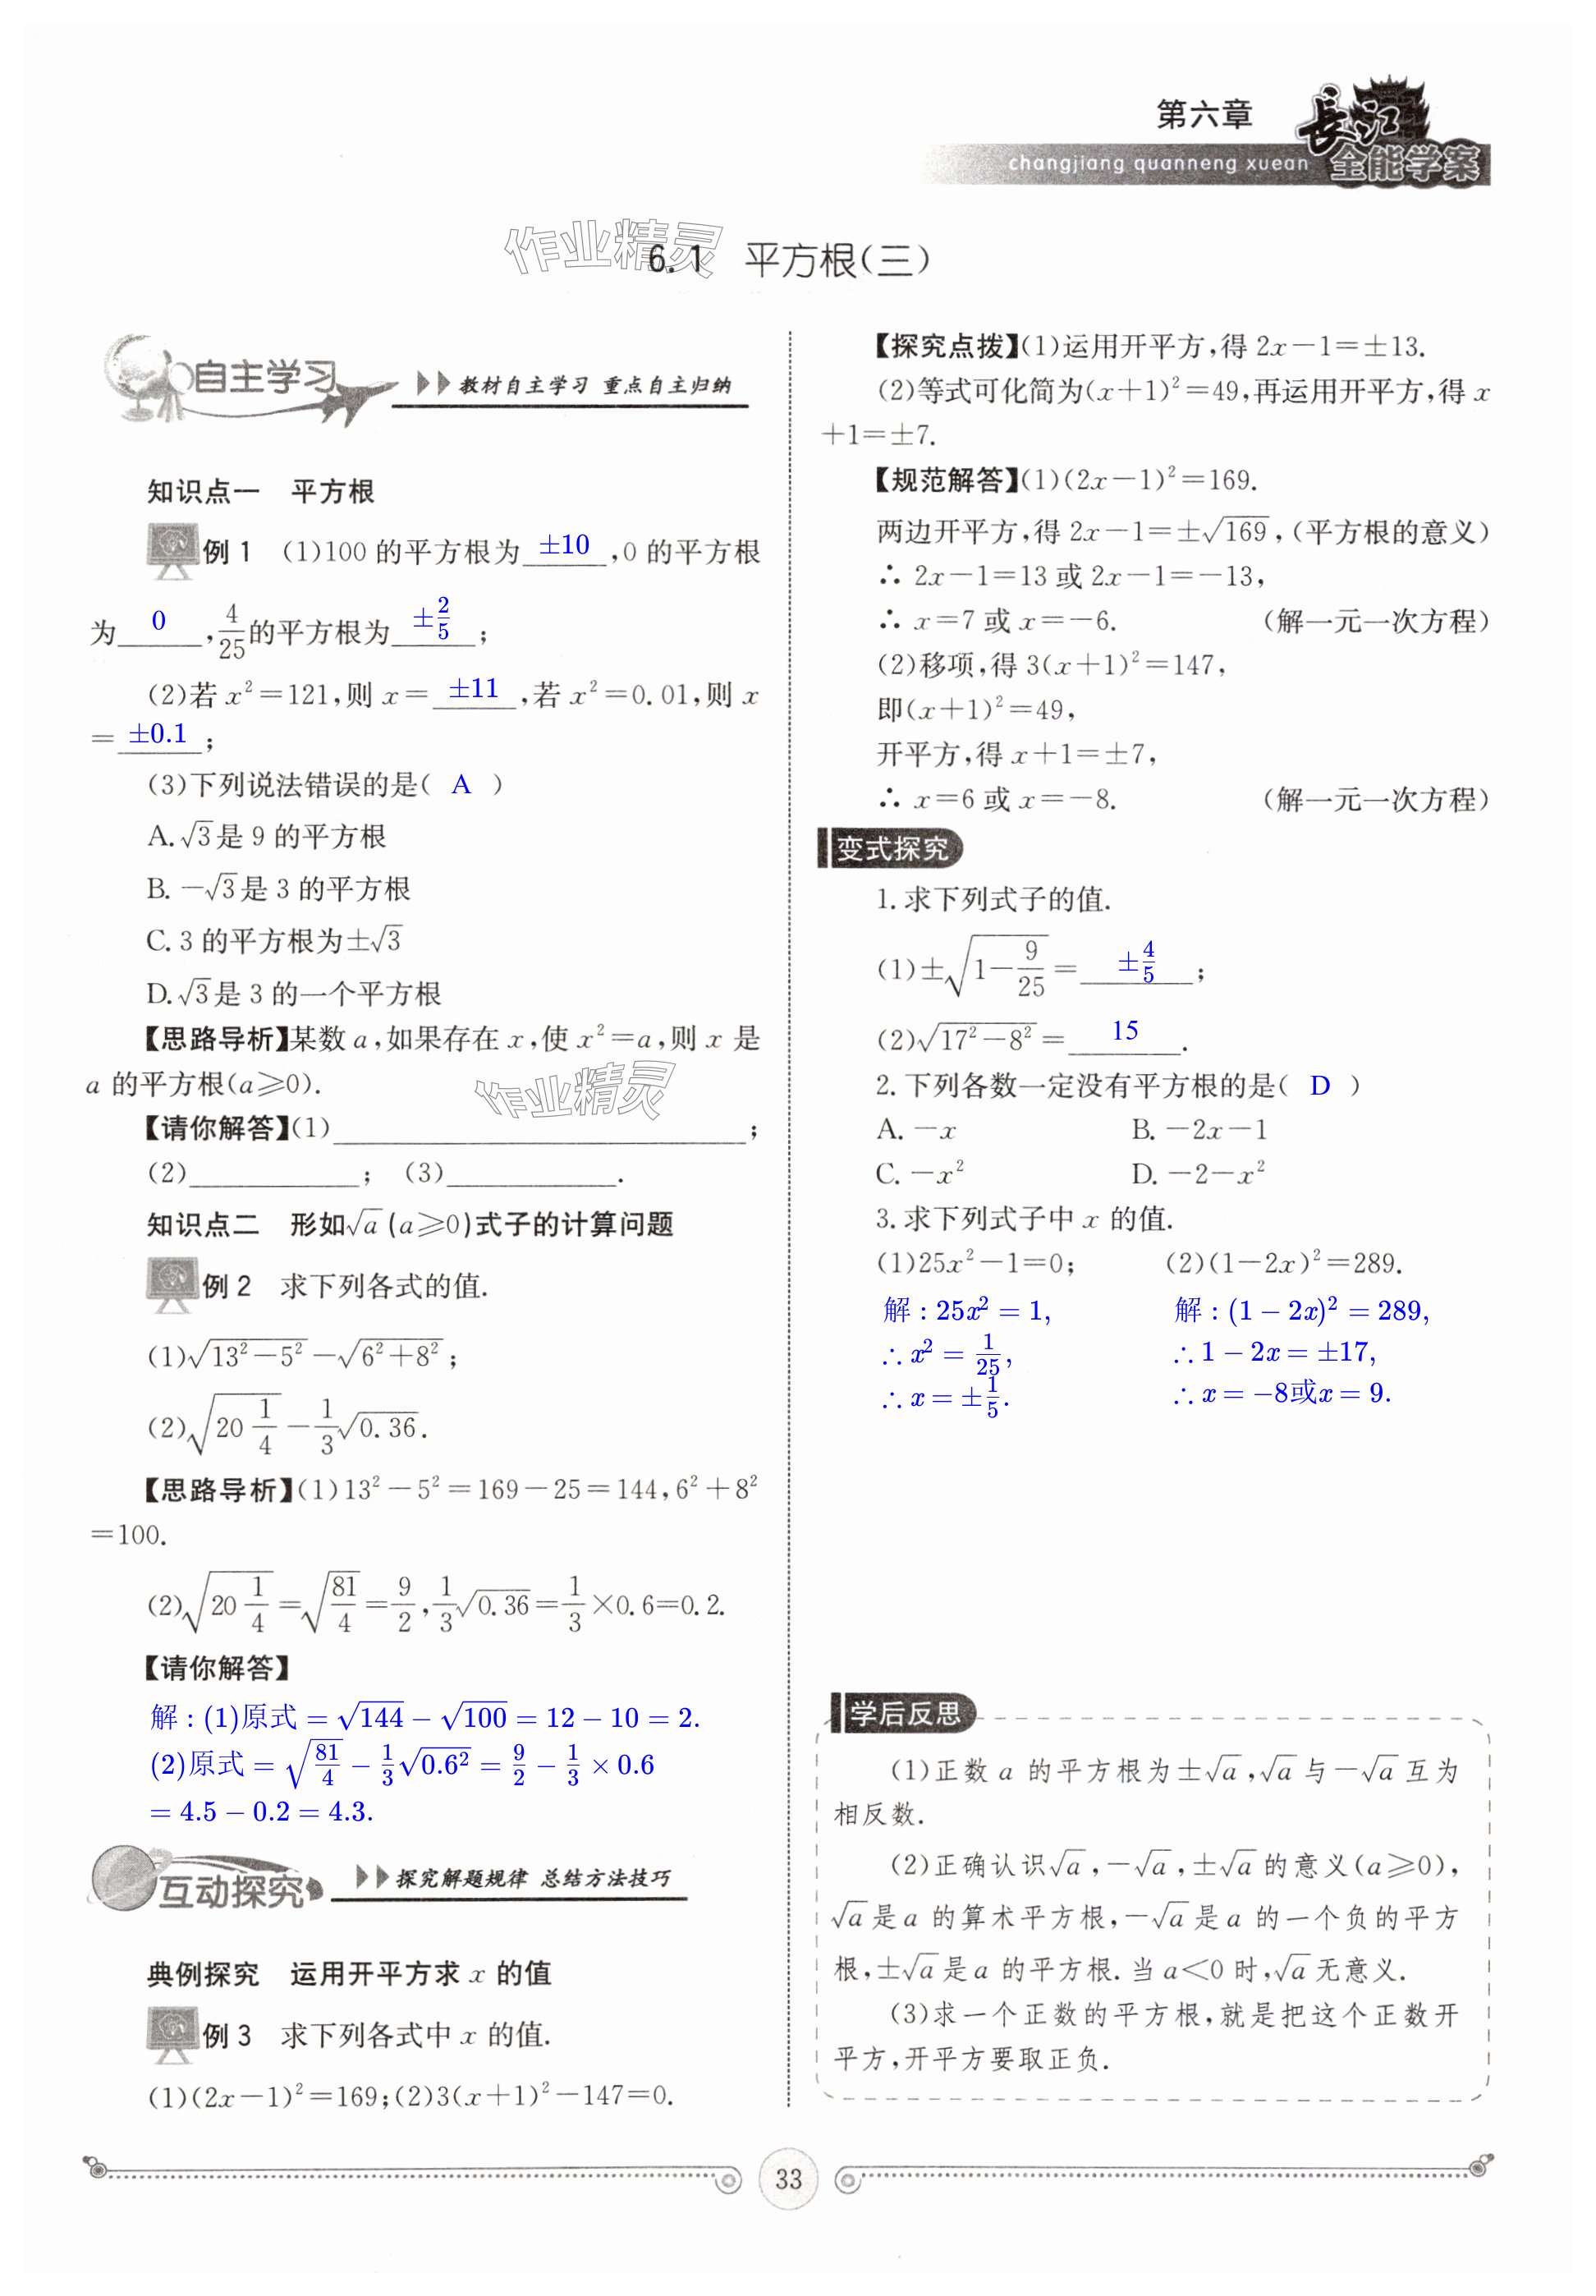 第六章
長江
全能学案
changjiang quanneng xuean
作业精灵
6.1 平方根(三)
自主学习 教材自主学习 重点自主归纳
知识点一 平方根
例1 (1)100的平方根为 ±10 ,0的平方根
为 0 ,4/25的平方根为 ±2/5 ;
(2)若x²=121,则x= ±11 ,若x²=0.01,则x
= ±0.1 ;
(3)下列说法错误的是( A )
A.√3是9的平方根
B.-√3是3的平方根
C.3的平方根为±√3
D.√3是3的一个平方根
【思路导析】某数a,如果存在x,使x²=a,则x是
a的平方根(a≥0).
作业精灵
【请你解答】(1)______;
(2)______; (3)______.
知识点二 形如√a(a≥0)式子的计算问题
例2 求下列各式的值.
(1)√(13²-5²)-√(6²+8²);
(2)√(20 1/4)-1/3√0.36.
【思路导析】(1)13²-5²=169-25=144,6²+8²
=100.
(2)√(20 1/4)=√(81/4)=9/2,1/3√0.36=1/3×0.6=0.2.
【请你解答】
解:(1)原式=√144-√100=12-10=2.
(2)原式=√(81/4)-1/3√(0.6²)=9/2-1/3×0.6
=4.5-0.2=4.3.
互动探究 探究解题规律 总结方法技巧
典例探究 运用开平方求x的值
例3 求下列各式中x的值.
(1)(2x-1)²=169;(2)3(x+1)²-147=0.
【探究点拨】(1)运用开平方,得2x-1=±13.
(2)等式可化简为(x+1)²=49,再运用开平方,得x
+1=±7.
【规范解答】(1)(2x-1)²=169.
两边开平方,得2x-1=±√169,(平方根的意义)
∴ 2x-1=13或2x-1=-13,
∴ x=7或x=-6. (解一元一次方程)
(2)移项,得3(x+1)²=147,
即(x+1)²=49,
开平方,得x+1=±7,
∴ x=6或x=-8. (解一元一次方程)
变式探究
1.求下列式子的值.
(1)±√(1-9/25)= ±4/5 ;
(2)√(17²-8²)= 15 .
2.下列各数一定没有平方根的是( D )
A.-x B.-2x-1
C.-x² D.-2-x²
3.求下列式子中x的值.
(1)25x²-1=0; (2)(1-2x)²=289.
解:25x²=1, 解:(1-2x)²=289,
∴x²=1/25, ∴1-2x=±17,
∴x=±1/5. ∴x=-8或x=9.
学后反思
(1)正数a的平方根为±√a,√a与-√a互为
相反数.
(2)正确认识√a,-√a,±√a的意义(a≥0),
√a是a的算术平方根,-√a是a的一个负的平方
根,±√a是a的平方根.当a<0时,√a无意义.
(3)求一个正数的平方根,就是把这个正数开
平方,开平方要取正负.
33